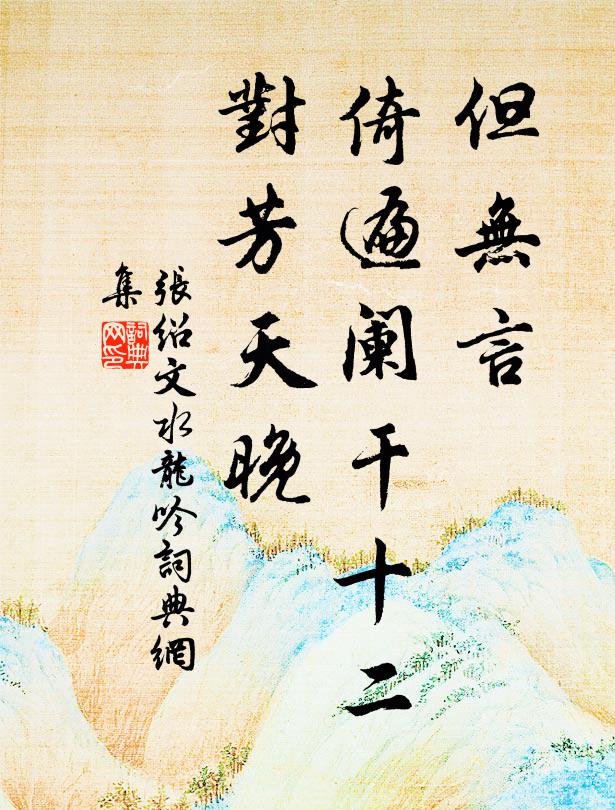 但無言
倚遍阑干十二
對芳天晚
張紹文水龍吟詞典網
集
詞典
网印